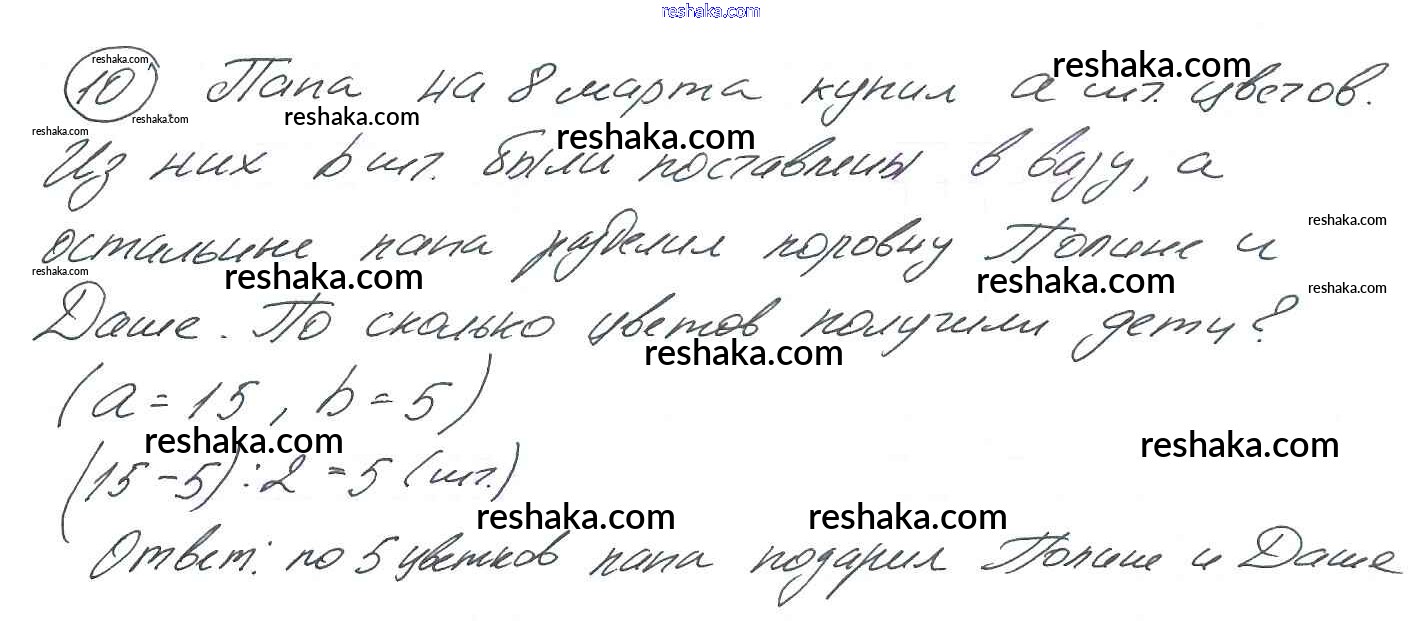 reshaka.com
reshaka.com
10 Папа на 8 марта купил a шт. цветов.
reshaka.com
reshaka.com
reshaka.com
reshaka.com
reshaka.com
Из них b шт. были поставлены в вазу, а
reshaka.com
остальные папа разделил поровну Полине и
reshaka.com
reshaka.com
reshaka.com
reshaka.com
Даше. По сколько цветов получили дети?
reshaka.com
(a = 15, b = 5)
reshaka.com
reshaka.com
(15 - 5) : 2 = 5 (шт.)
reshaka.com
reshaka.com
Ответ: по 5 цветков папа подарил Полине и Даше